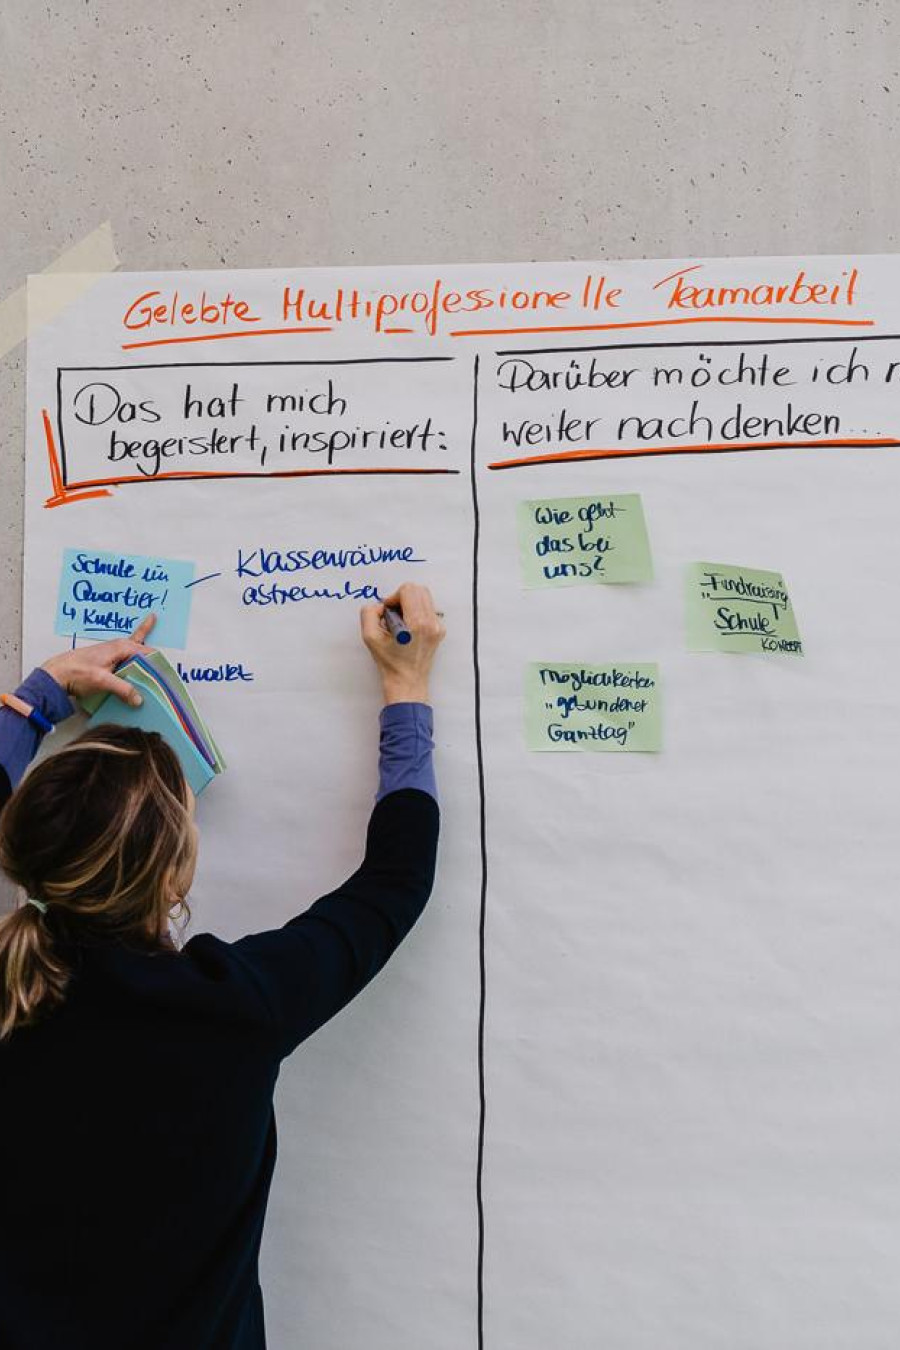 Gelebte Multiprofessionelle Teamarbeit
Das hat mich
begeistert, inspiriert:
Darüber möchte ich
weiter nachdenken...
Schule im
Quartier!
↳ Kultur
Klassenräume
Wie geht
das bei
uns?
"Fundraising"
Schule
Möglichkeiten
"gebundener
Ganztag"